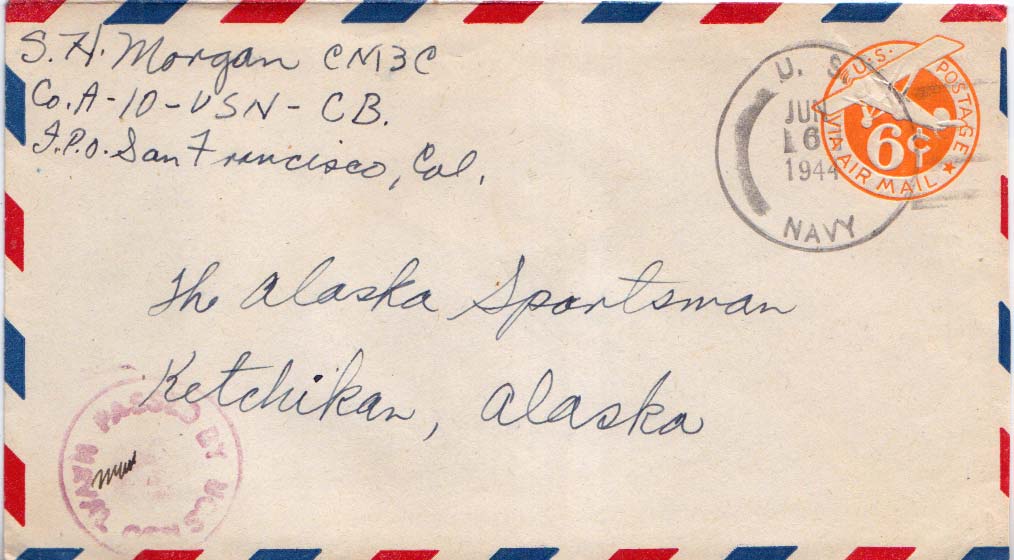 S. H. Morgan CM3C
Co. A - 10 - USN - CB.
F.P.O. San Francisco, Cal.
U. S.
JUN
16
1944
NAVY
U.S. POSTAGE
6¢
VIA AIR MAIL
The Alaska Sportsman
Ketchikan, Alaska
PASSED BY
NAVAL